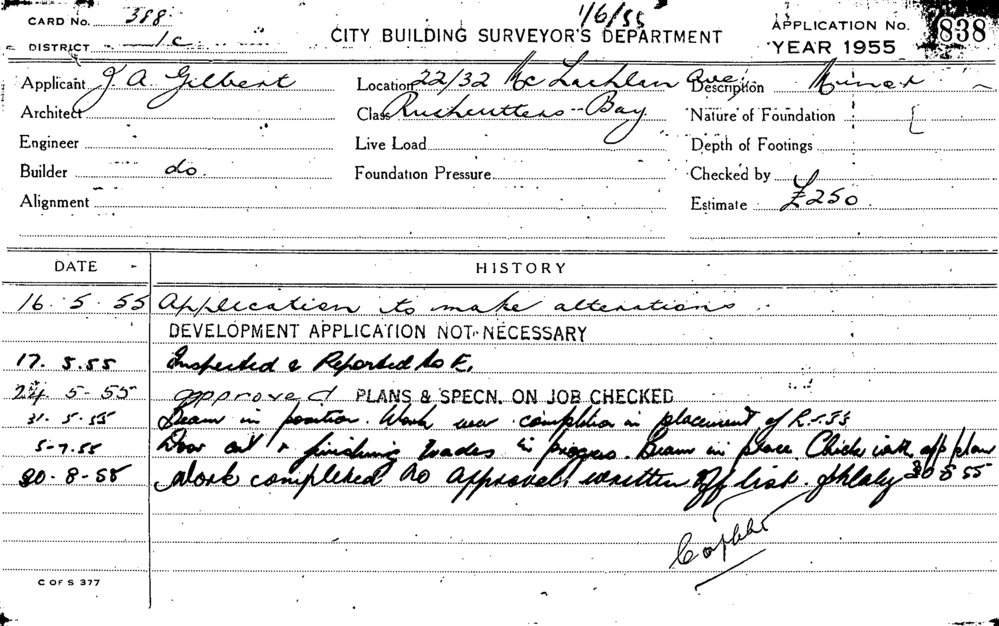 CARD No. 388
1/6/55
CITY BUILDING SURVEYOR'S DEPARTMENT
APPLICATION No. 838
DISTRICT 1c
YEAR 1955
Applicant J. A. Gilbert Location 22/32 McLachlan Ave Description Minor
Architect Class Rushcutters Bay Nature of Foundation
Engineer Live Load Depth of Footings
Builder do. Foundation Pressure Checked by
Alignment Estimate £250
DATE HISTORY
16.5.55 Application to make alterations
DEVELOPMENT APPLICATION NOT NECESSARY
17.5.55 Inspected & Reported to E.
24-5-55 approved PLANS & SPECN. ON JOB CHECKED
31.5.55 Beam in position. Work completion in placement of R.S.J's
5-7.55 Door out & finishing trades in progress. Beam in place Check with app plan
30-8-55 Work completed to approval, written off list. 30 8 55
C OF S 377